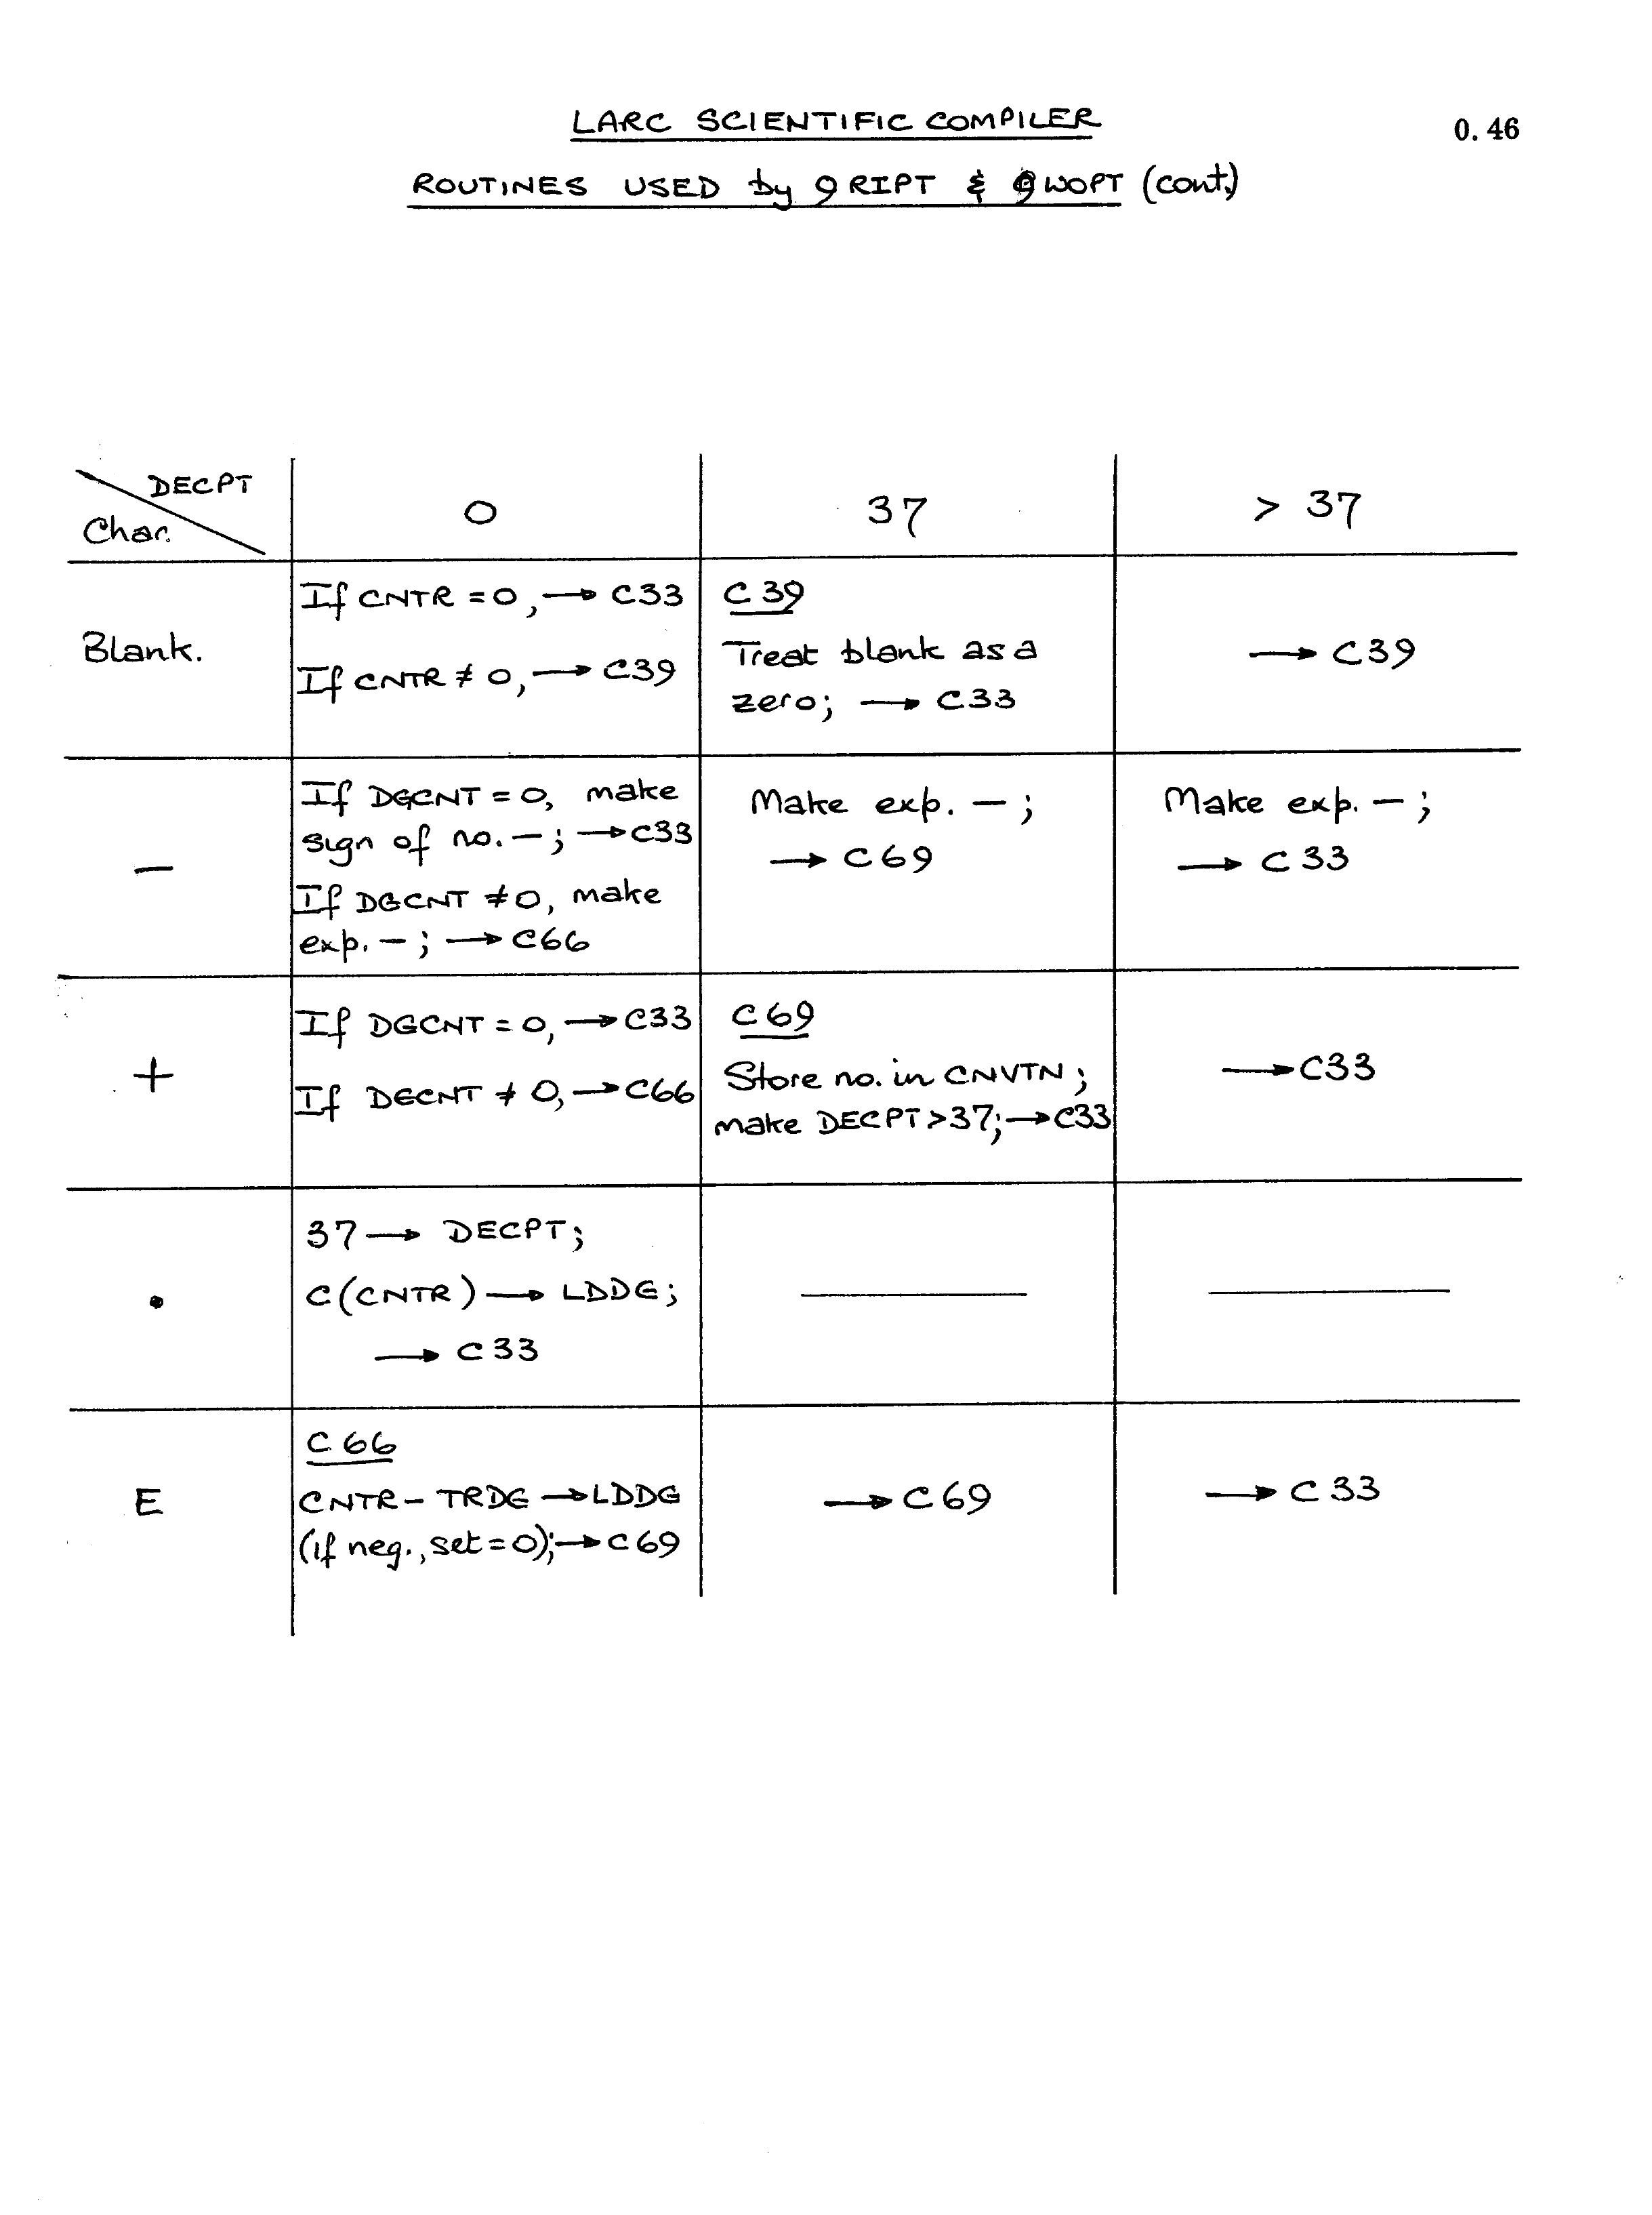 LARC SCIENTIFIC COMPILER
0.46
ROUTINES USED by 9RIPT & 9WOPT (cont.)
DECPT
Char.
0
37
> 37
Blank.
If CNTR = 0, → C33
If CNTR ≠ 0, → C39
C39
Treat blank as a
zero; → C33
→ C39
—
If DGCNT = 0, make
sign of no. —; → C33
If DGCNT ≠ 0, make
exp. —; → C66
Make exp. —;
→ C69
Make exp. —;
→ C33
+
If DGCNT = 0, → C33
If DGCNT ≠ 0, → C66
C69
Store no. in CNVTN;
make DECPT > 37; → C33
→ C33
.
37 → DECPT;
C(CNTR) → LDDG;
→ C33
E
C66
CNTR - TRDG → LDDG
(if neg., set = 0); → C69
→ C69
→ C33